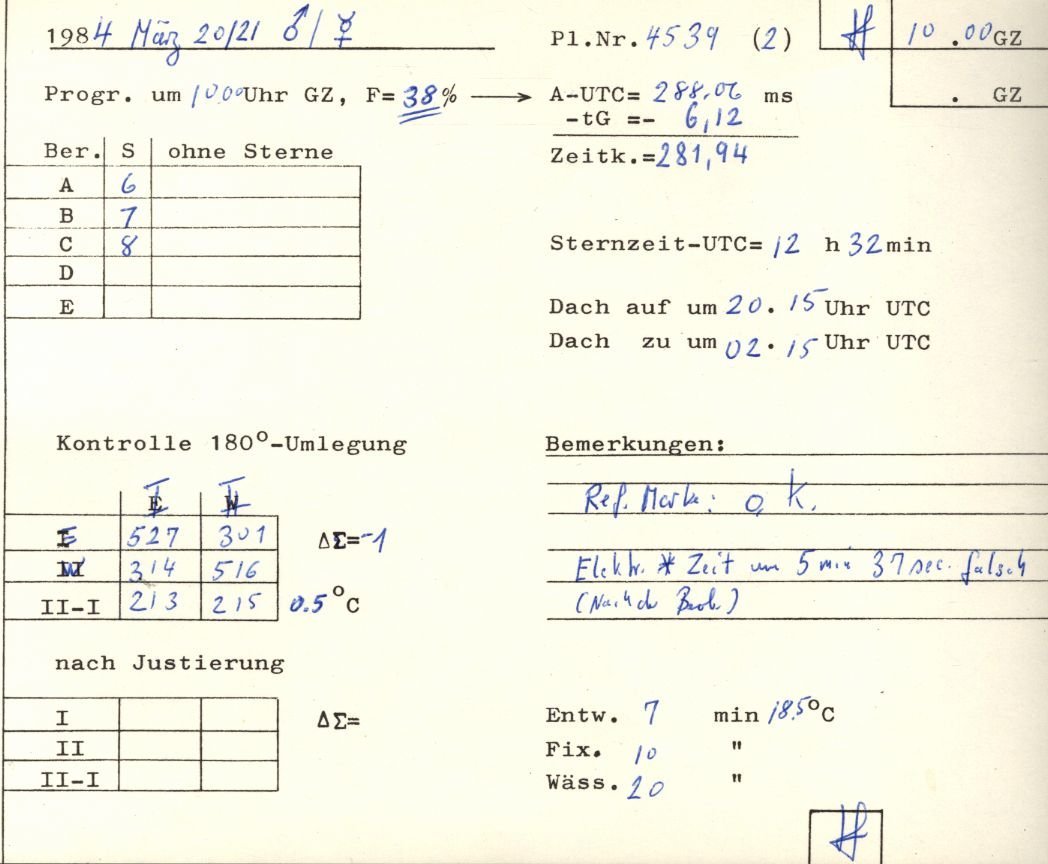 1984 März 20/21 ♂ / ☿ Pl.Nr. 4539 (2) 10.00 GZ
Progr. um 10.00 Uhr GZ, F= 38 % → A-UTC= 288,06 ms . GZ
-tG =- 6,12
Zeitk.= 281,94
Ber. S ohne Sterne
A 6
B 7
C 8
D
E
Sternzeit-UTC= 12 h 32 min
Dach auf um 20.15 Uhr UTC
Dach zu um 02.15 Uhr UTC
Kontrolle 180°-Umlegung
I II
E W
I 527 301 ΔΣ= -1
II 314 516
II-I 213 215 0.5 °C
Bemerkungen:
Ref. Marke: o.k.
Elektr. * Zeit um 5 min 37 sec. falsch
(Nach d. Beob.)
nach Justierung
I ΔΣ=
II
II-I
Entw. 7 min 18.5 °C
Fix. 10 "
Wäss. 20 "